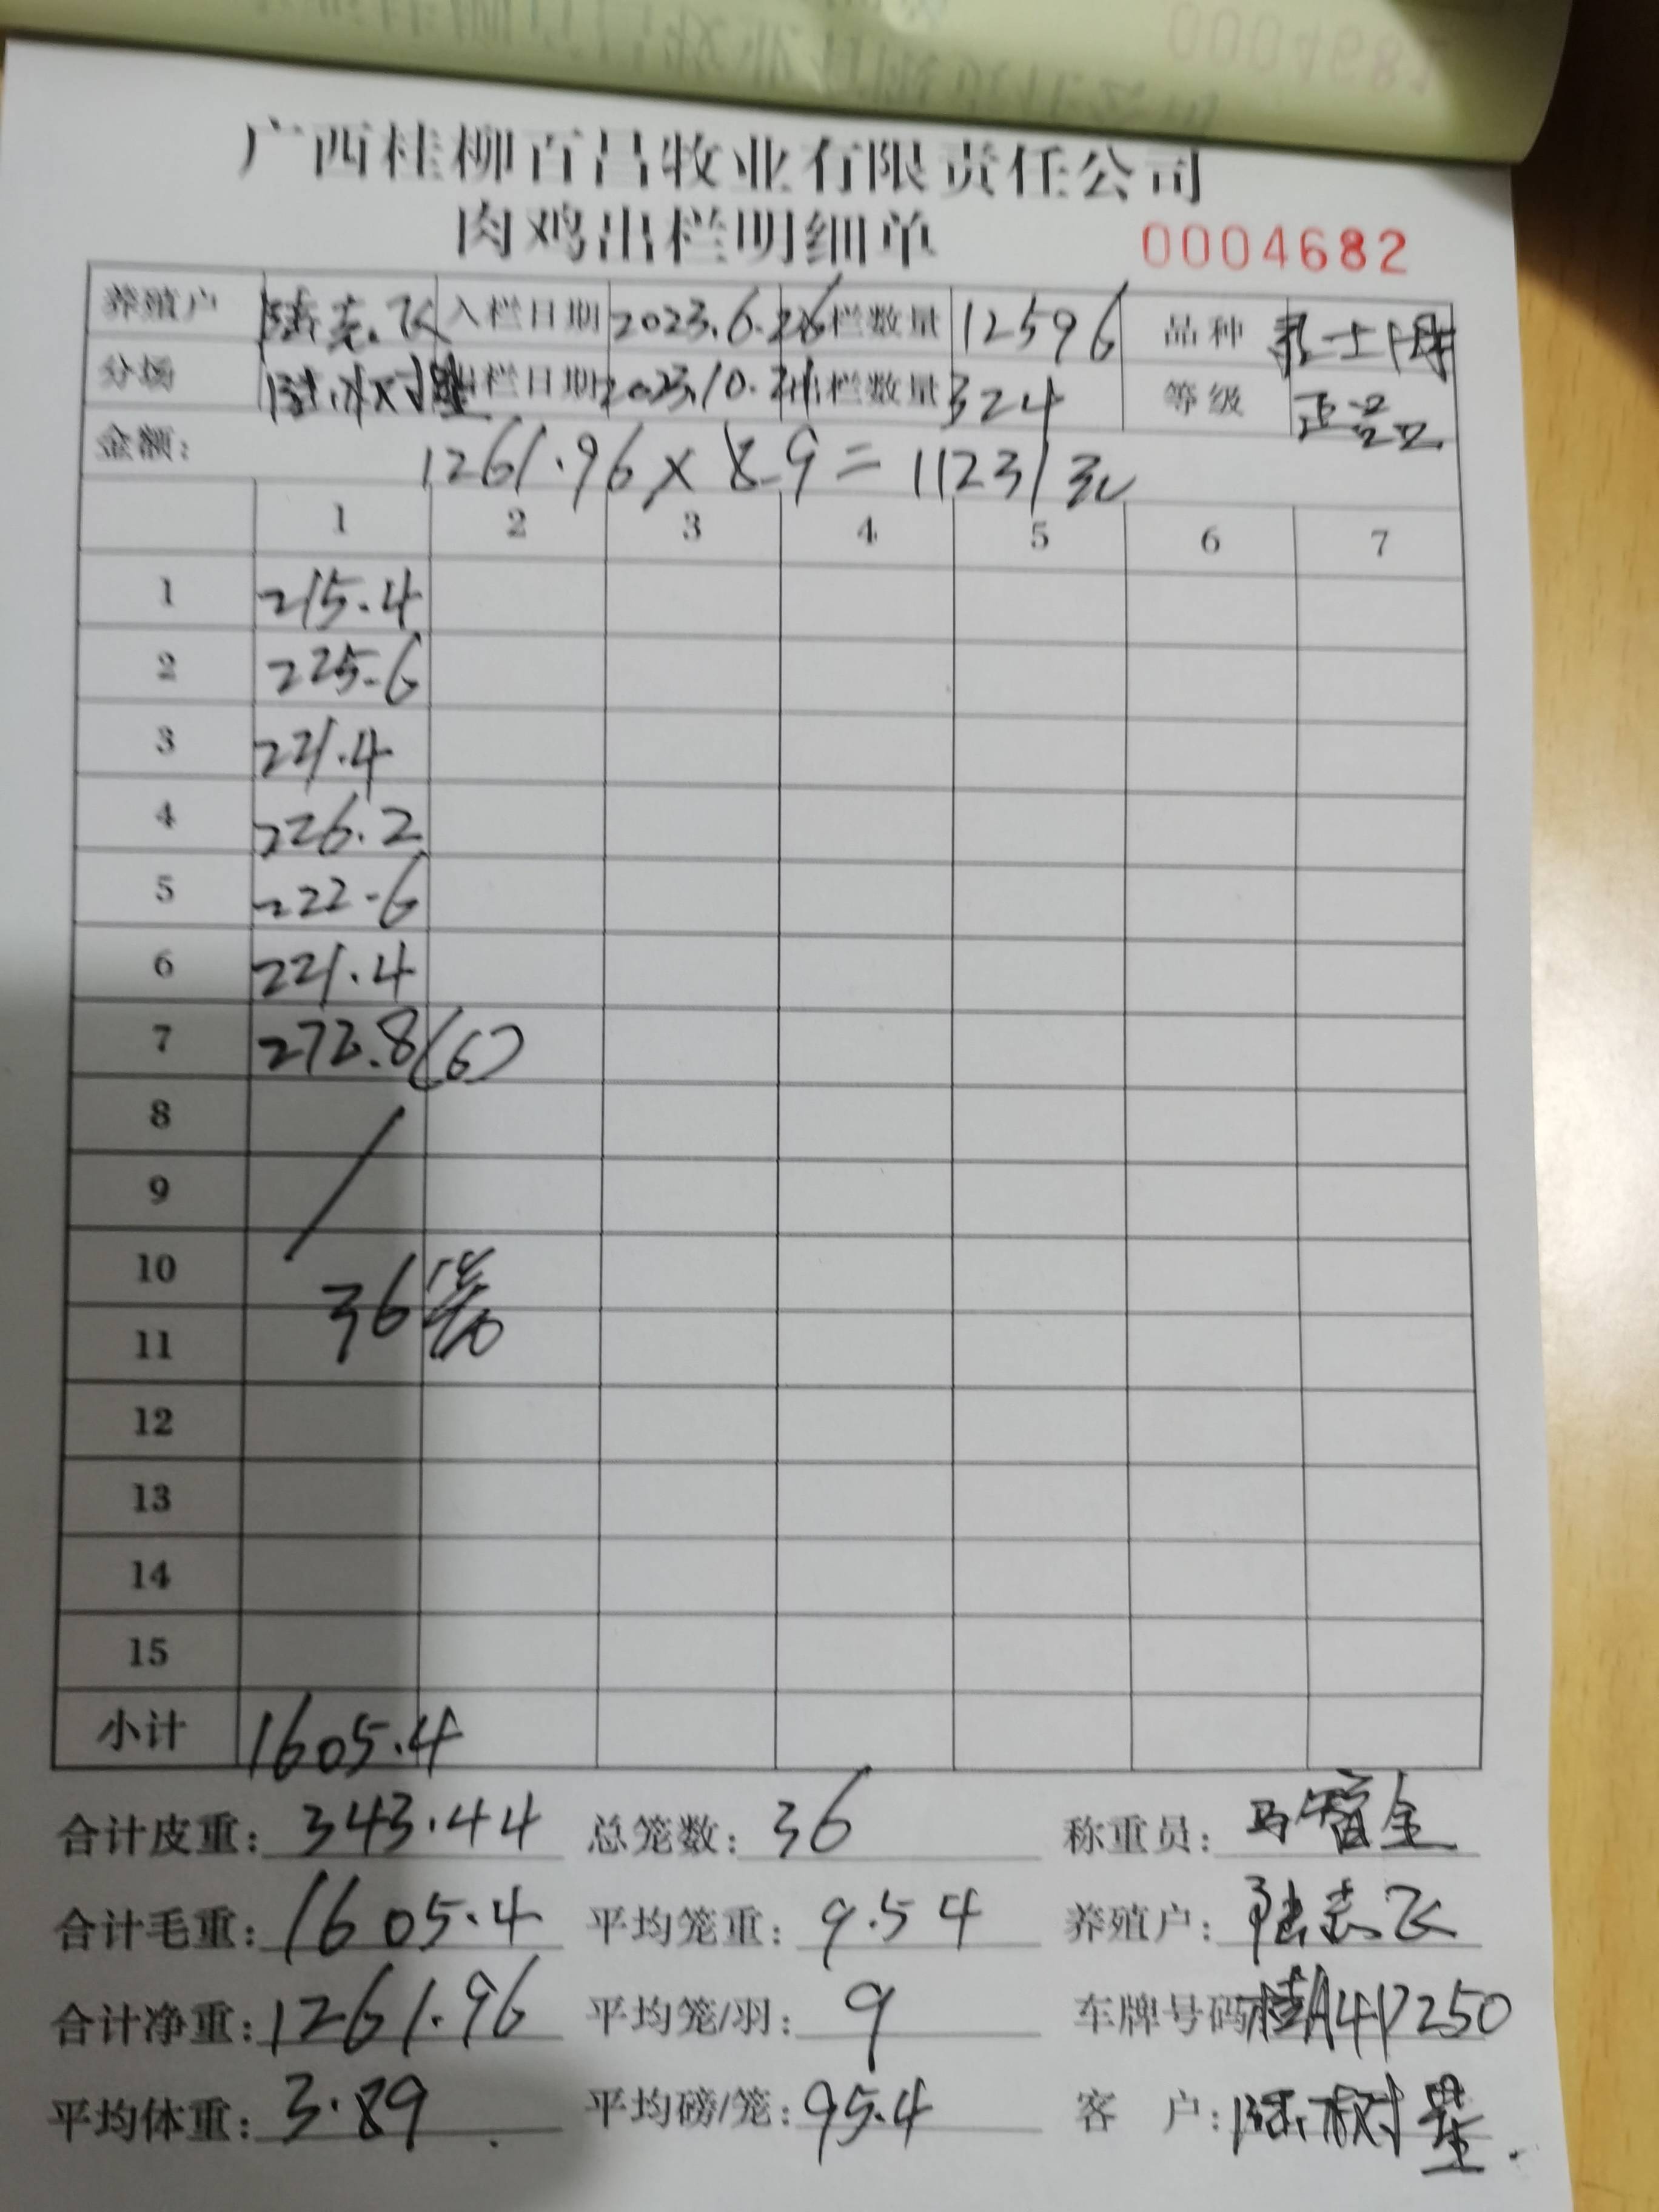 广西桂柳百昌牧业有限责任公司
肉鸡出栏明细单 0004682
养殖户 陆志飞 入栏日期 2023.6.26 栏数量 12596 品种
分场 陈树星 出栏日期 2023.10. 出栏数量 324 等级 正品
金额: 1261.96 × 8.9 = 11231元
1 2 3 4 5 6 7
1 215.4
2 225.6
3 221.4
4 226.2
5 222.6
6 221.4
7 272.8(6)
8
9
10
36笼
11
12
13
14
15
小计 1605.4
合计皮重: 343.44 总笼数: 36 称重员: 马金
合计毛重: 1605.4 平均笼重: 9.54 养殖户: 陆志飞
合计净重: 1261.96 平均笼/羽: 9 车牌号码 桂A4P250
平均体重: 3.89 平均磅/笼: 95.4 客 户: 陈树星